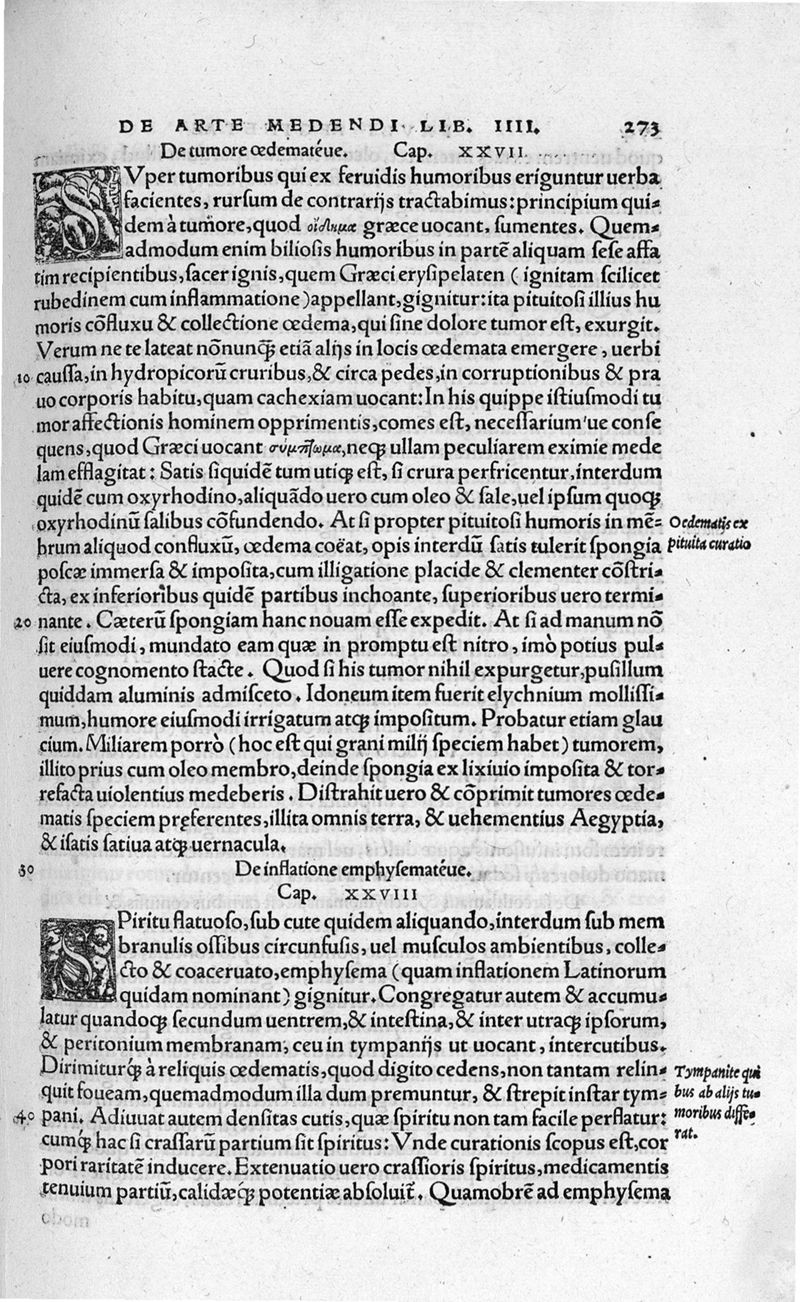 DE ARTE MEDENDI LIB. IIII. 273
De tumore œdematéue. Cap. XXVII
SVper tumoribus qui ex feruidis humoribus eriguntur uerba
facientes, rursum de contrarijs tractabimus: principium qui-
dem à tumore, quod οἴδημα græce uocant, sumentes. Quem-
admodum enim biliosis humoribus in partē aliquam sese affa
tim recipientibus, sacer ignis, quem Græci erysipelaten ( ignitam scilicet
rubedinem cum inflammatione ) appellant, gignitur: ita pituitosi illius hu
moris cōfluxu & collectione œdema, qui sine dolore tumor est, exurgit.
Verum ne te lateat nōnunq̃ꝫ etiā alijs in locis œdemata emergere, uerbi
10 caussa, in hydropicorū cruribus, & circa pedes, in corruptionibus & pra
uo corporis habitu, quam cachexiam uocant: In his quippe istiusmodi tu
mor affectionis hominem opprimentis, comes est, necessarium'ue conse
quens, quod Græci uocant σύμπτωμα, neqꝫ ullam peculiarem eximie mede
lam efflagitat: Satis siquidē tum utiqꝫ est, si crura perfricentur, interdum
quidē cum oxyrhodino, aliquādo uero cum oleo & sale, uel ipsum quoqꝫ
oxyrhodinū salibus cōfundendo. At si propter pituitosi humoris in mē-
brum aliquod confluxū, œdema coëat, opis interdū satis tulerit spongia
poscæ immersa & imposita, cum illigatione placide & clementer cōstri-
cta, ex inferioribus quidē partibus inchoante, superioribus uero termi-
20 nante. Cæterū spongiam hanc nouam esse expedit. At si ad manum nō
sit eiusmodi, mundato eam quæ in promptu est nitro, imò potius pul-
uere cognomento stacte. Quod si his tumor nihil expurgetur, pusillum
quiddam aluminis admisceto. Idoneum item fuerit elychnium mollissi-
mum, humore eiusmodi irrigatum atqꝫ impositum. Probatur etiam glau
cium. Miliarem porrò (hoc est qui grani milij speciem habet) tumorem,
illito prius cum oleo membro, deinde spongia ex lixiuio imposita & tor-
refacta uiolentius medeberis. Distrahit uero & cōprimit tumores œde-
matis speciem pręferentes, illita omnis terra, & uehementius Aegyptia,
& isatis satiua atqꝫ uernacula.
Oedematis ex
pituita curatio
30 De inflatione emphysematéue.
Cap. XXVIII
SPiritu flatuoso, sub cute quidem aliquando, interdum sub mem
branulis ossibus circunfusis, uel musculos ambientibus, colle-
cto & coaceruato, emphysema (quam inflationem Latinorum
quidam nominant) gignitur. Congregatur autem & accumu-
latur quandoqꝫ secundum uentrem, & intestina, & inter utraqꝫ ipsorum,
& peritonium membranam, ceu in tympanijs ut uocant, intercutibus.
Dirimiturq́ꝫ à reliquis œdematis, quod digito cedens, non tantam relin-
quit foueam, quemadmodum illa dum premuntur, & strepit instar tym-
40 pani. Adiuuat autem densitas cutis, quæ spiritu non tam facile perflatur:
cumq́ꝫ hac si crassarū partium sit spiritus: Vnde curationis scopus est, cor
pori raritatē inducere. Extenuatio uero crassioris spiritus, medicamentis
tenuium partiū, calidæq́ꝫ potentiæ absoluit̃. Quamobrē ad emphysema
Tympanite qui
bus ab alijs tu-
moribus diffe-
rat.